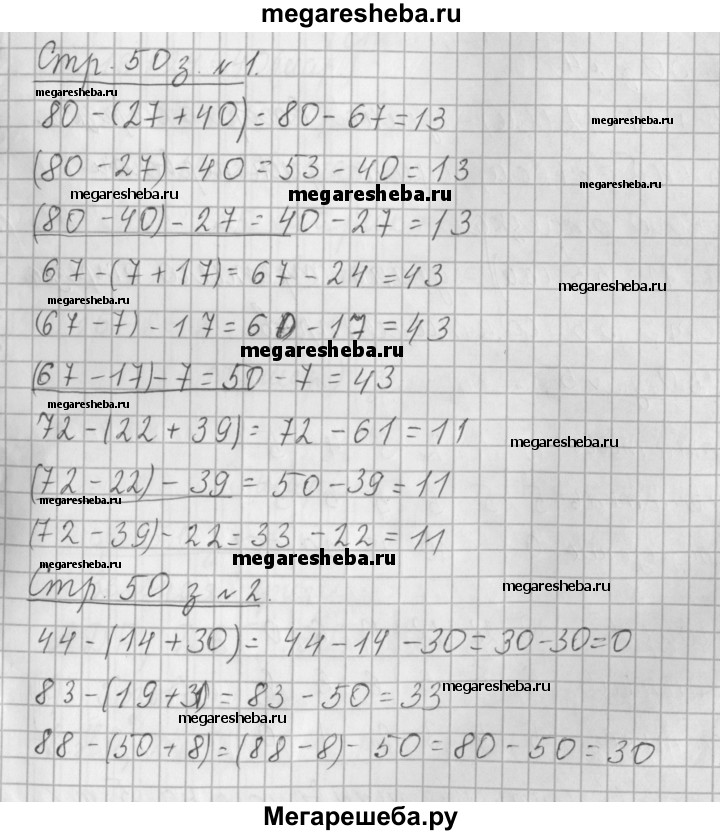 megaresheba.ru
Стр. 50 з. №1.
megaresheba.ru
80 - (27 + 40) = 80 - 67 = 13
megaresheba.ru
(80 - 27) - 40 = 53 - 40 = 13
megaresheba.ru
megaresheba.ru megaresheba.ru
(80 - 40) - 27 = 40 - 27 = 13
67 - (7 + 17) = 67 - 24 = 43
megaresheba.ru
megaresheba.ru
(67 - 7) - 17 = 60 - 17 = 43
megaresheba.ru
(67 - 17) - 7 = 50 - 7 = 43
megaresheba.ru
72 - (22 + 39) = 72 - 61 = 11
megaresheba.ru
(72 - 22) - 39 = 50 - 39 = 11
megaresheba.ru
(72 - 39) - 22 = 33 - 22 = 11
megaresheba.ru
megaresheba.ru
Стр. 50 з №2.
megaresheba.ru
44 - (14 + 30) = 44 - 14 - 30 = 30 - 30 = 0
83 - (19 + 31) = 83 - 50 = 33
megaresheba.ru
megaresheba.ru
88 - (50 + 8) = (88 - 8) - 50 = 80 - 50 = 30
megaresheba.ru
megaresheba.ru
Мегарешеба.ру